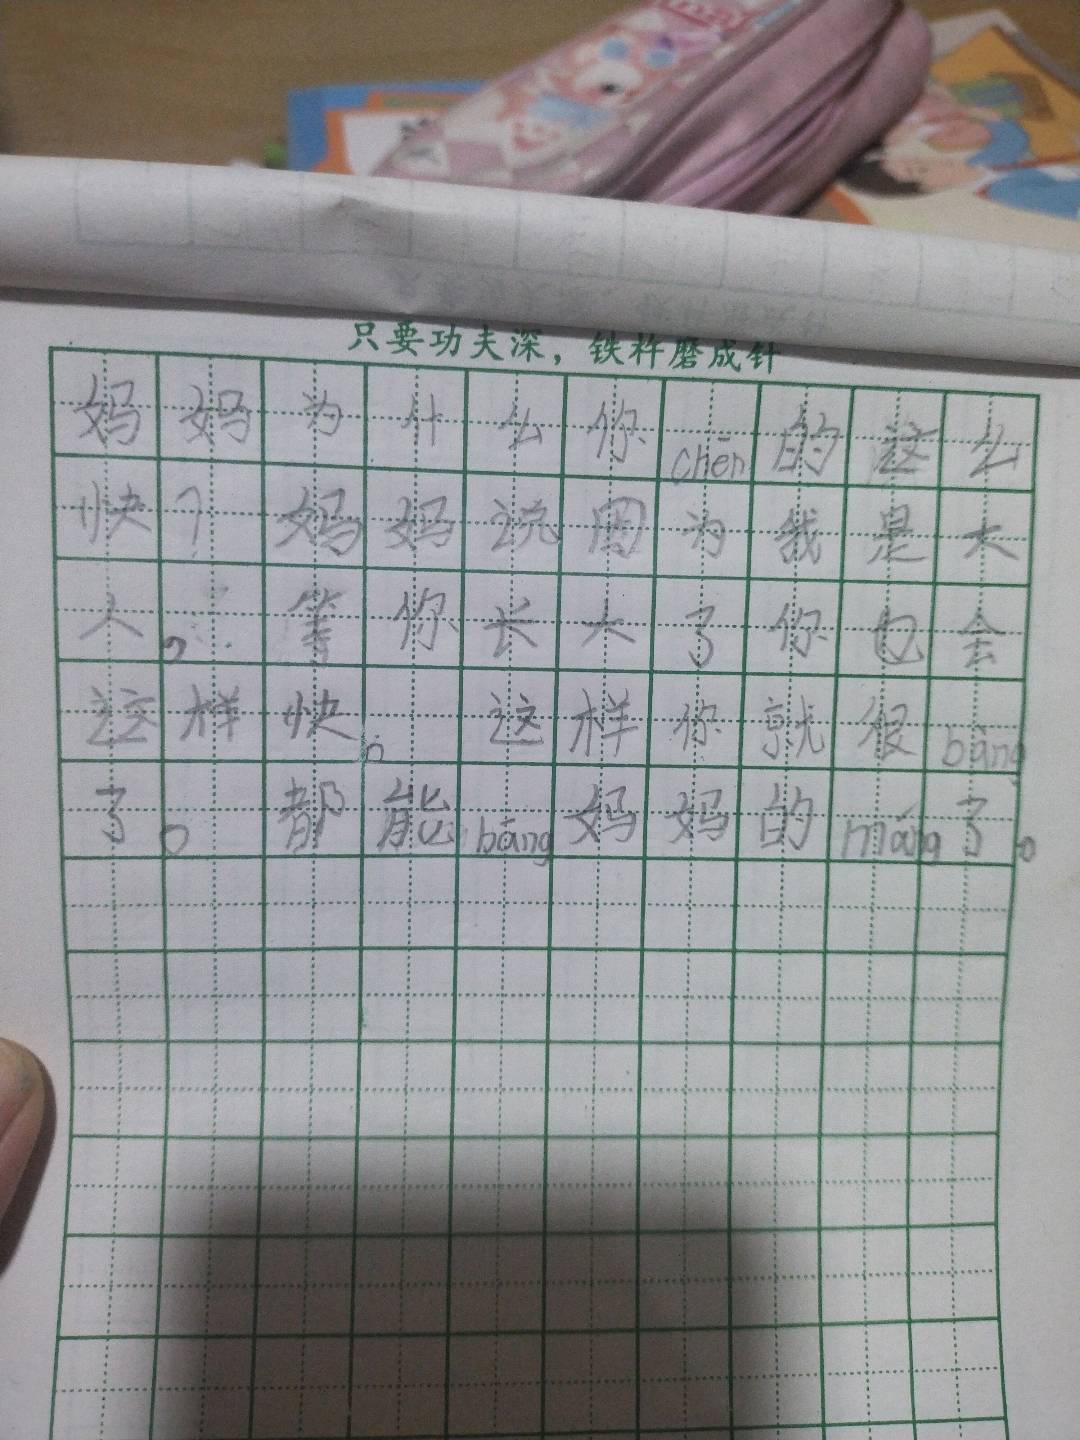 只要功夫深，铁杵磨成针
妈妈为什么你chēn的这么
快？妈妈说因为我是大
人，等你长大了你也会
这样快。这样你就很bàng
了。都能bāng妈妈的máng了。